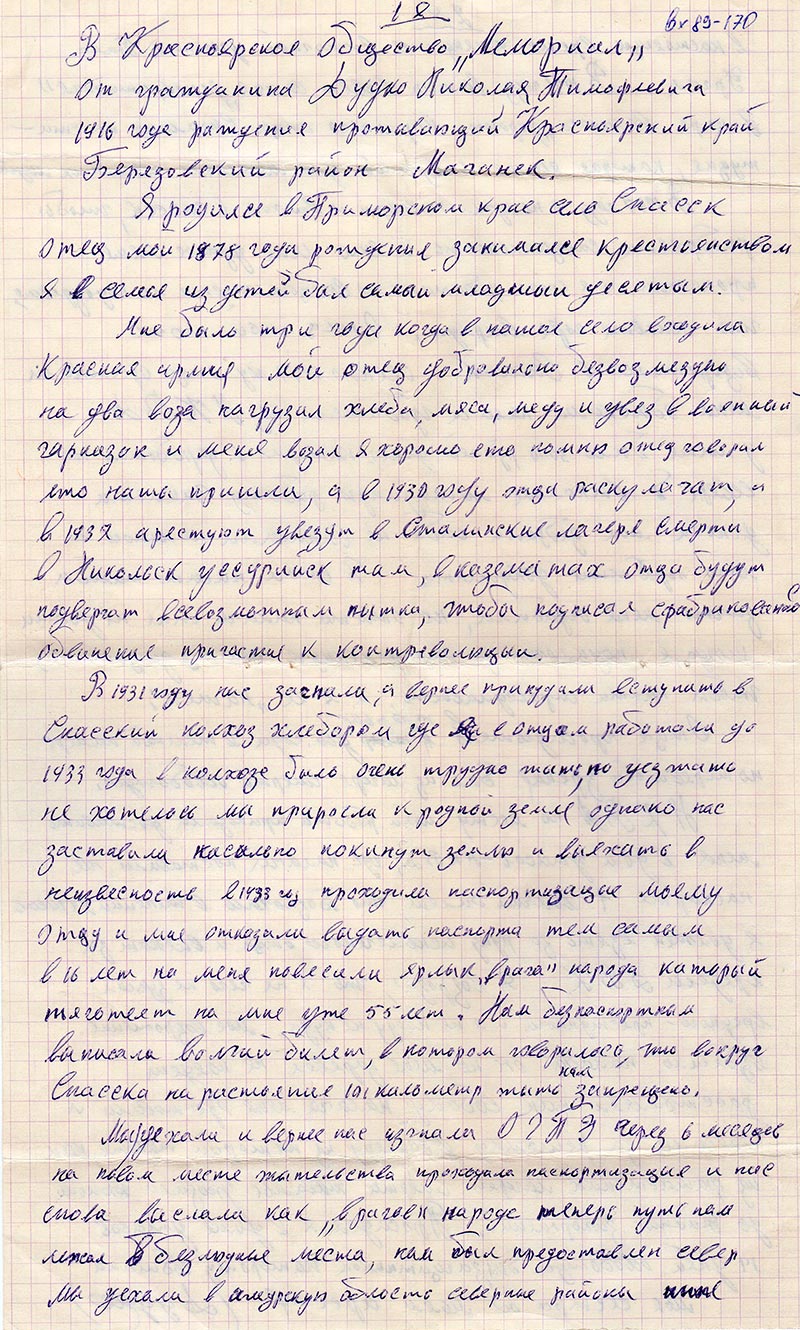 18
Вх 89-170
В Красноярское общество „Мемориал"
от гражданина Дудко Николая Тимофеевича
1916 года раждения проживающий Красноярский край
Березовский район Маганск.
Я родился в Приморском крае село Спасск
отец мой 1878 года рождения занимался крестьянством
я в семье из детей был самый младший десятым.
Мне было три года когда в нашое село входила
Красная армия мой отец добровольно безвозмездно
на два воза нагрузил хлеба, мяса, меду и увез в военный
гарнизон и меня возал я хорошо ето помню отец говорил
ето наши пришли, а в 1930 году отца раскулачат, а
в 1937 арестуют увезут в Сталинские лагеря смерти
в Никольск уссурийск там, в казематах отца будут
подвергат всевозможным пытка, чтобы подписал сфабриковано
обвинение причастие к контреволюции.
В 1931 году нас загнали, а вернее принудили вступить в
Спасский колхоз хлебороб где я с отцом работали до
1933 года в колхозе было очень трудно жить, но уезжать
не хотелось мы приросли к родной земле однако нас
заставили насильно покинут землю и выехать в
неизвесность в 1933 г проходила паспортизация моему
отцу и мне отказали выдать паспорта тем самым
в 16 лет на меня повесили ярлык „врага" народа каторый
тяготеет на мне уже 55 лет. Нам безпаспортным
выписали волчий билет, в котором говорилось, что вокруг
Спасска на растояние 101 километр жить нам запрещено.
Мы уехали и вернее нас изгнали О Г П У через 6 месяцев
на новом месте жительства проходила паспортизация и нас
снова выслали как „врагов" народа теперь путь нам
лежал в безлюдные места, нам был предоставлен север
мы уехали в амурскую область северные районы